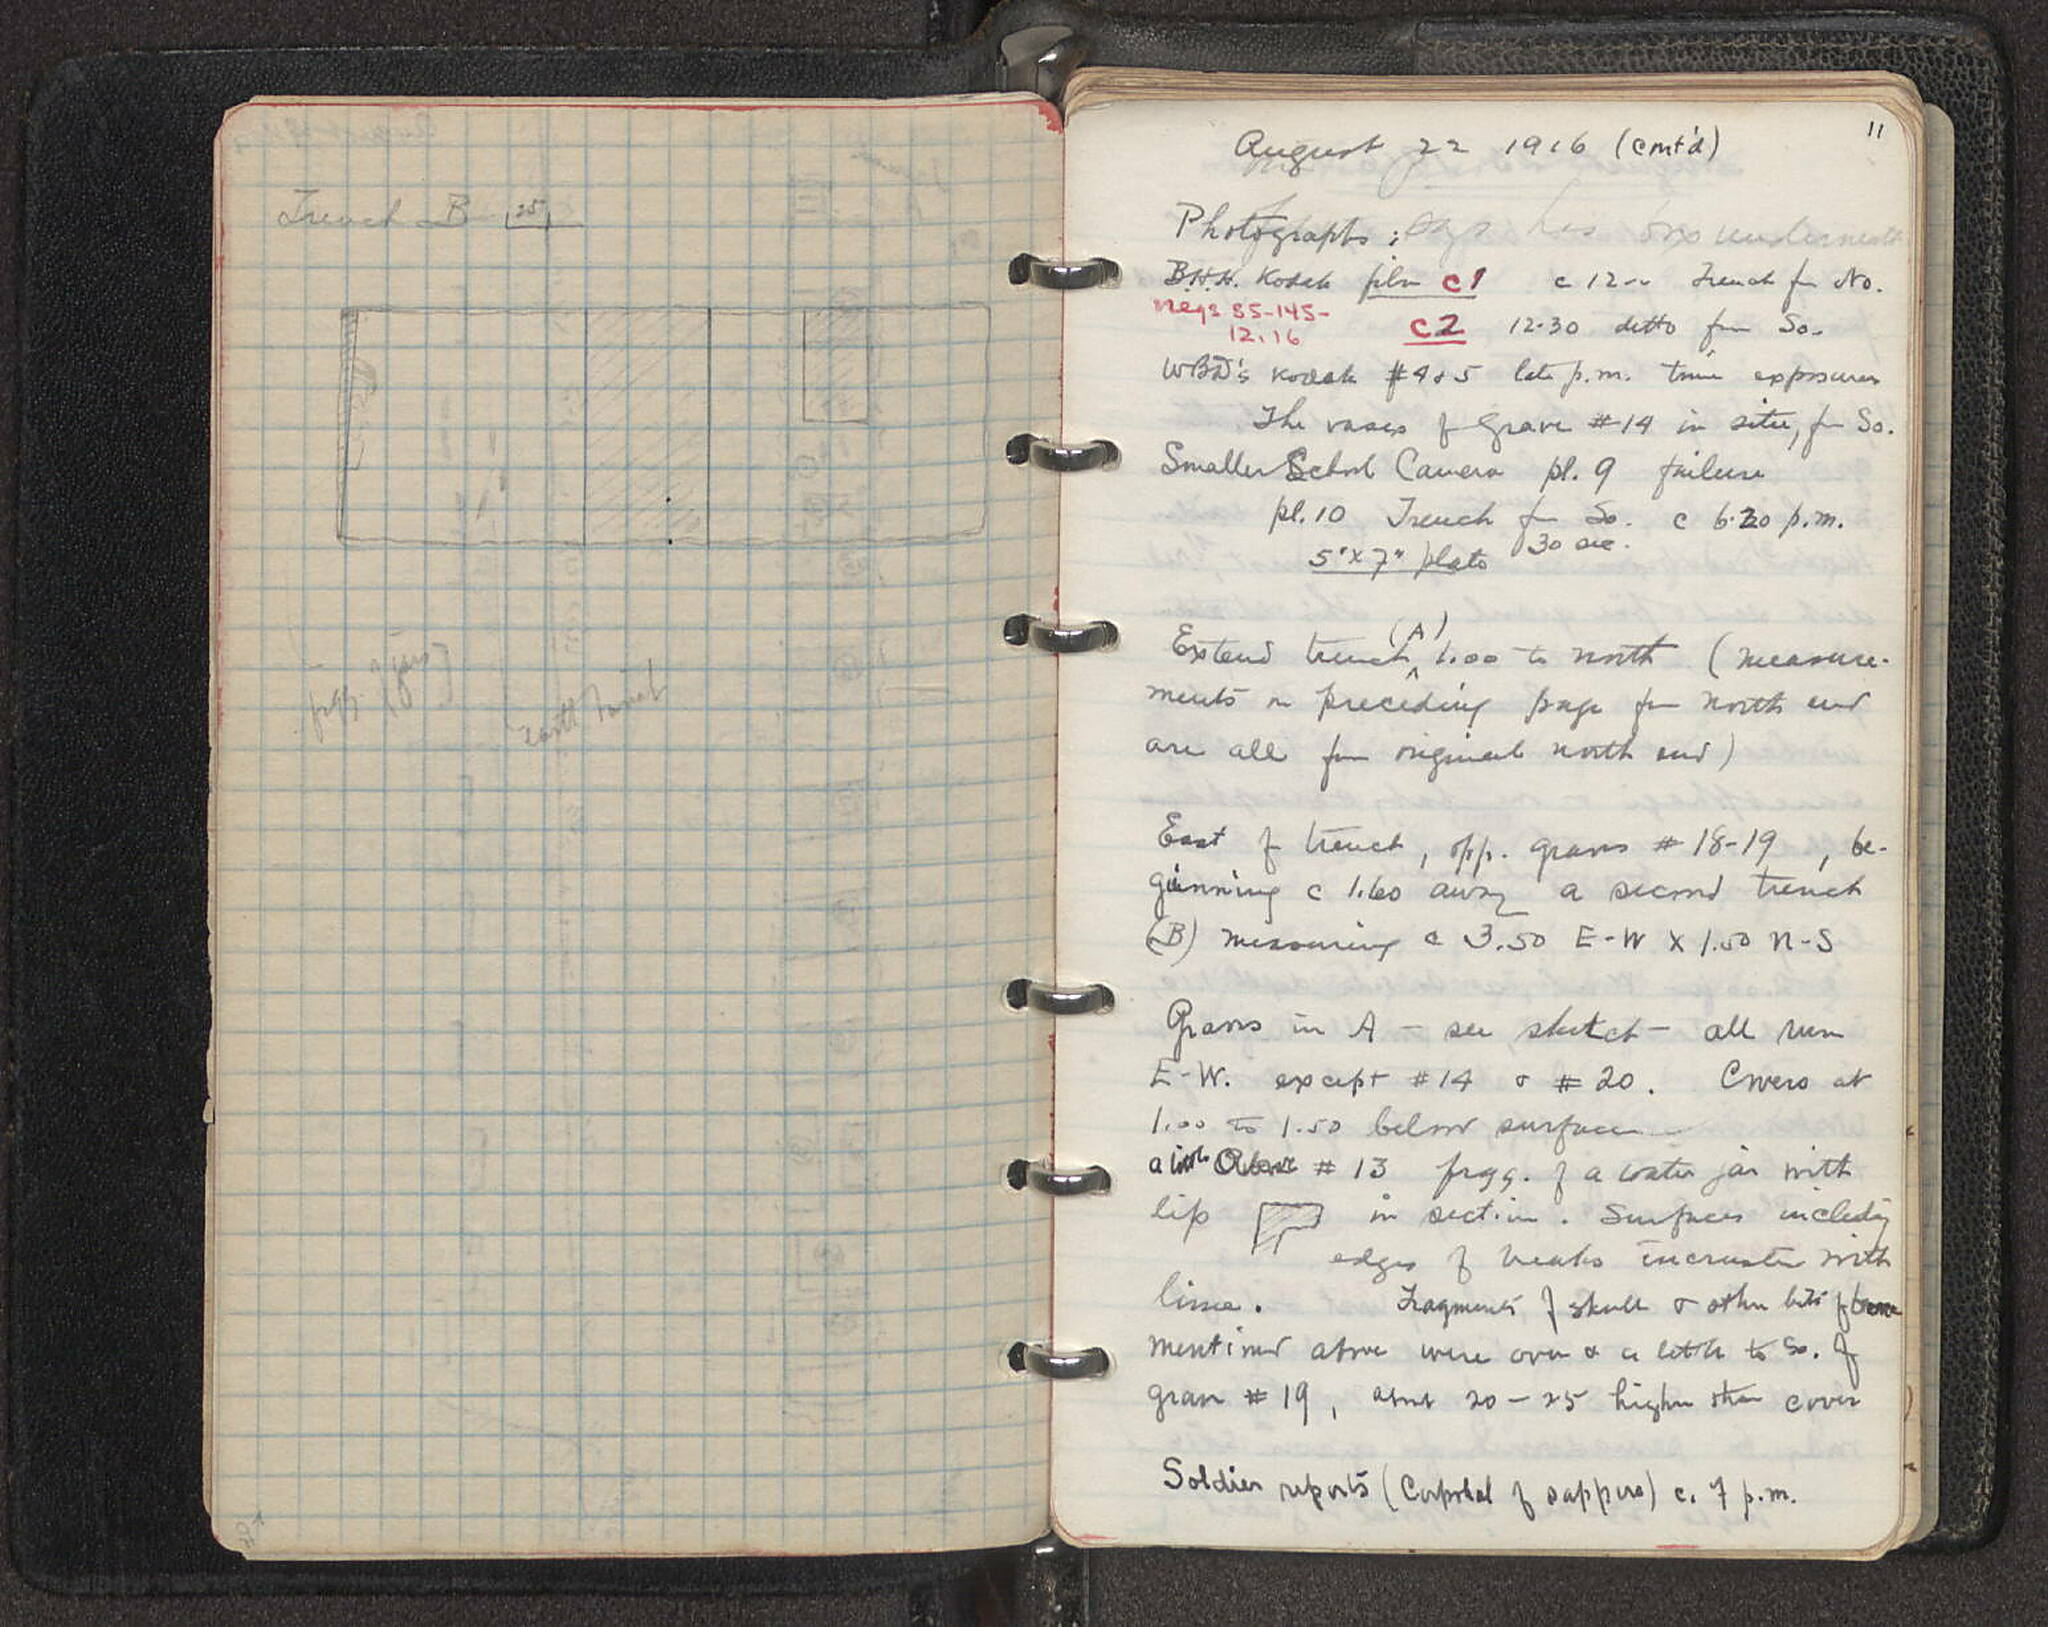 Trench B 25
frgs. 
earth
11
August 22 1916 (cont'd)
Photographs: has box underneath
B.H.H. Kodak film c1 c 12-- Trench fm No.
Negs 55-145-
12.16
c2 12.30 ditto fm So.
WBD's Kodak #4 & 5 late p.m. time exposures
The vases of grave #14 in situ, fm So.
Smaller School Camera pl. 9 failure
pl. 10 Trench fm So. c 6.20 p.m.
5"x7" plate 30 sec.
(A)
Extend trench ^ 1.00 to north (measure-
ments on preceding page fm north end
are all fm original north end)
East of trench, opp. graves #18-19, be-
ginning c 1.60 away a second trench
(B) measuring c 3.50 E-W x 1.50 N-S
Graves in A - see sketch - all run
E-W. except #14 & #20. Covers at
1.00 to 1.50 below surface
a little above #13 frgg. of a water jar with
lip in section. Surfaces including
edges of breaks incrusted with
lime. Fragments of skull & other bits of bone
mentioned above were over & a little to So. of
grave #19, about 20-25 higher than cover
Soldier reports (Corporal of sappers) c. 7 p.m.